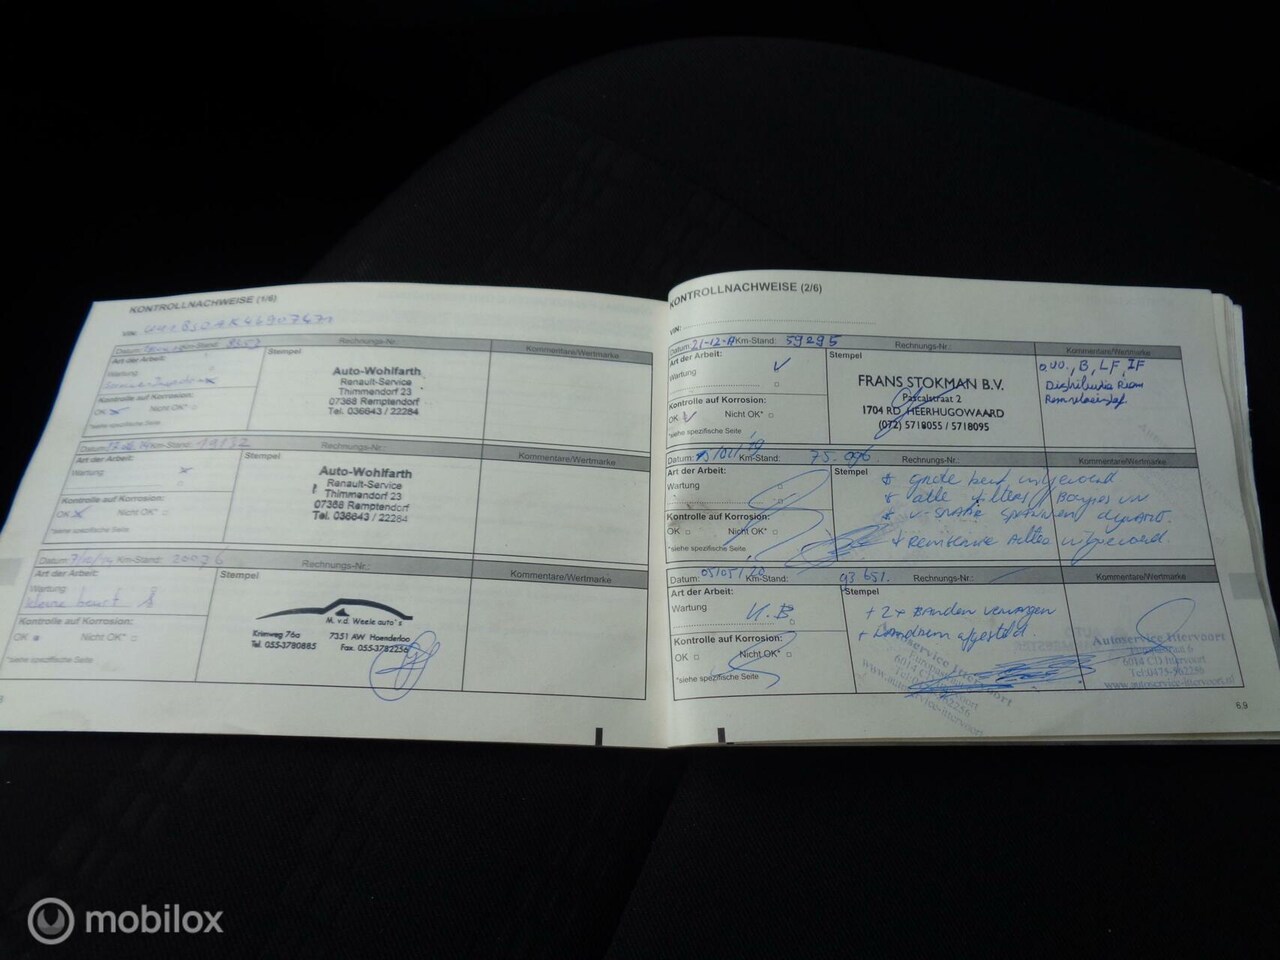 KONTROLLNACHWEISE (1/6)
VIN:
Datum: Km-Stand: Rechnungs-Nr.:
Art der Arbeit: Stempel Kommentare/Wertmarke
Wartung
Kontrolle auf Korrosion:
OK Nicht OK*
*siehe spezifische Seite
Auto-Wohlfarth
Renault-Service
Thimmendorf 23
07368 Remptendorf
Tel. 036643 / 22284
Datum: Km-Stand: 19132 Rechnungs-Nr.:
Art der Arbeit: Stempel Kommentare/Wertmarke
Wartung
Kontrolle auf Korrosion:
OK Nicht OK*
*siehe spezifische Seite
Auto-Wohlfarth
Renault-Service
Thimmendorf 23
07368 Remptendorf
Tel. 036643 / 22284
Datum: Km-Stand: 20076 Rechnungs-Nr.:
Art der Arbeit: Stempel Kommentare/Wertmarke
Wartung
kleine beurt
Kontrolle auf Korrosion:
OK Nicht OK*
*siehe spezifische Seite
M. v.d. Weele auto's
Krimweg 76a 7351 AW Hoenderloo
Tel. 055-3780885 Fax. 055-3782256
KONTROLLNACHWEISE (2/6)
VIN:
Datum: 21-12-17 Km-Stand: 59295 Rechnungs-Nr.: Kommentare/Wertmarke
Art der Arbeit: Stempel
Wartung
Kontrolle auf Korrosion:
OK Nicht OK*
*siehe spezifische Seite
FRANS STOKMAN B.V.
Pascalstraat 2
1704 RD HEERHUGOWAARD
(072) 5718055 / 5718095
O.V.O., B, LF, IF
Distributie Riem
Remvloeistof
Datum: Km-Stand: 75.096. Rechnungs-Nr.: Kommentare/Wertmarke
Art der Arbeit: Stempel
Wartung
Kontrolle auf Korrosion:
OK Nicht OK*
*siehe spezifische Seite
* grote beurt uitgevoerd
* alle filters / Bougies VN
* v-snaar spannen dynamo.
* Remservice Achter uitgevoerd.
Datum: 05/05/20 Km-Stand: 93651. Rechnungs-Nr.: Kommentare/Wertmarke
Art der Arbeit: Stempel
Wartung
K.B
Kontrolle auf Korrosion:
OK Nicht OK*
*siehe spezifische Seite
+ 2x Banden vervangen
+ Handrem afgesteld.
Autoservice Ittervoort
6014 CD Ittervoort
www.autoservice-ittervoort.nl
6.9
mobilox